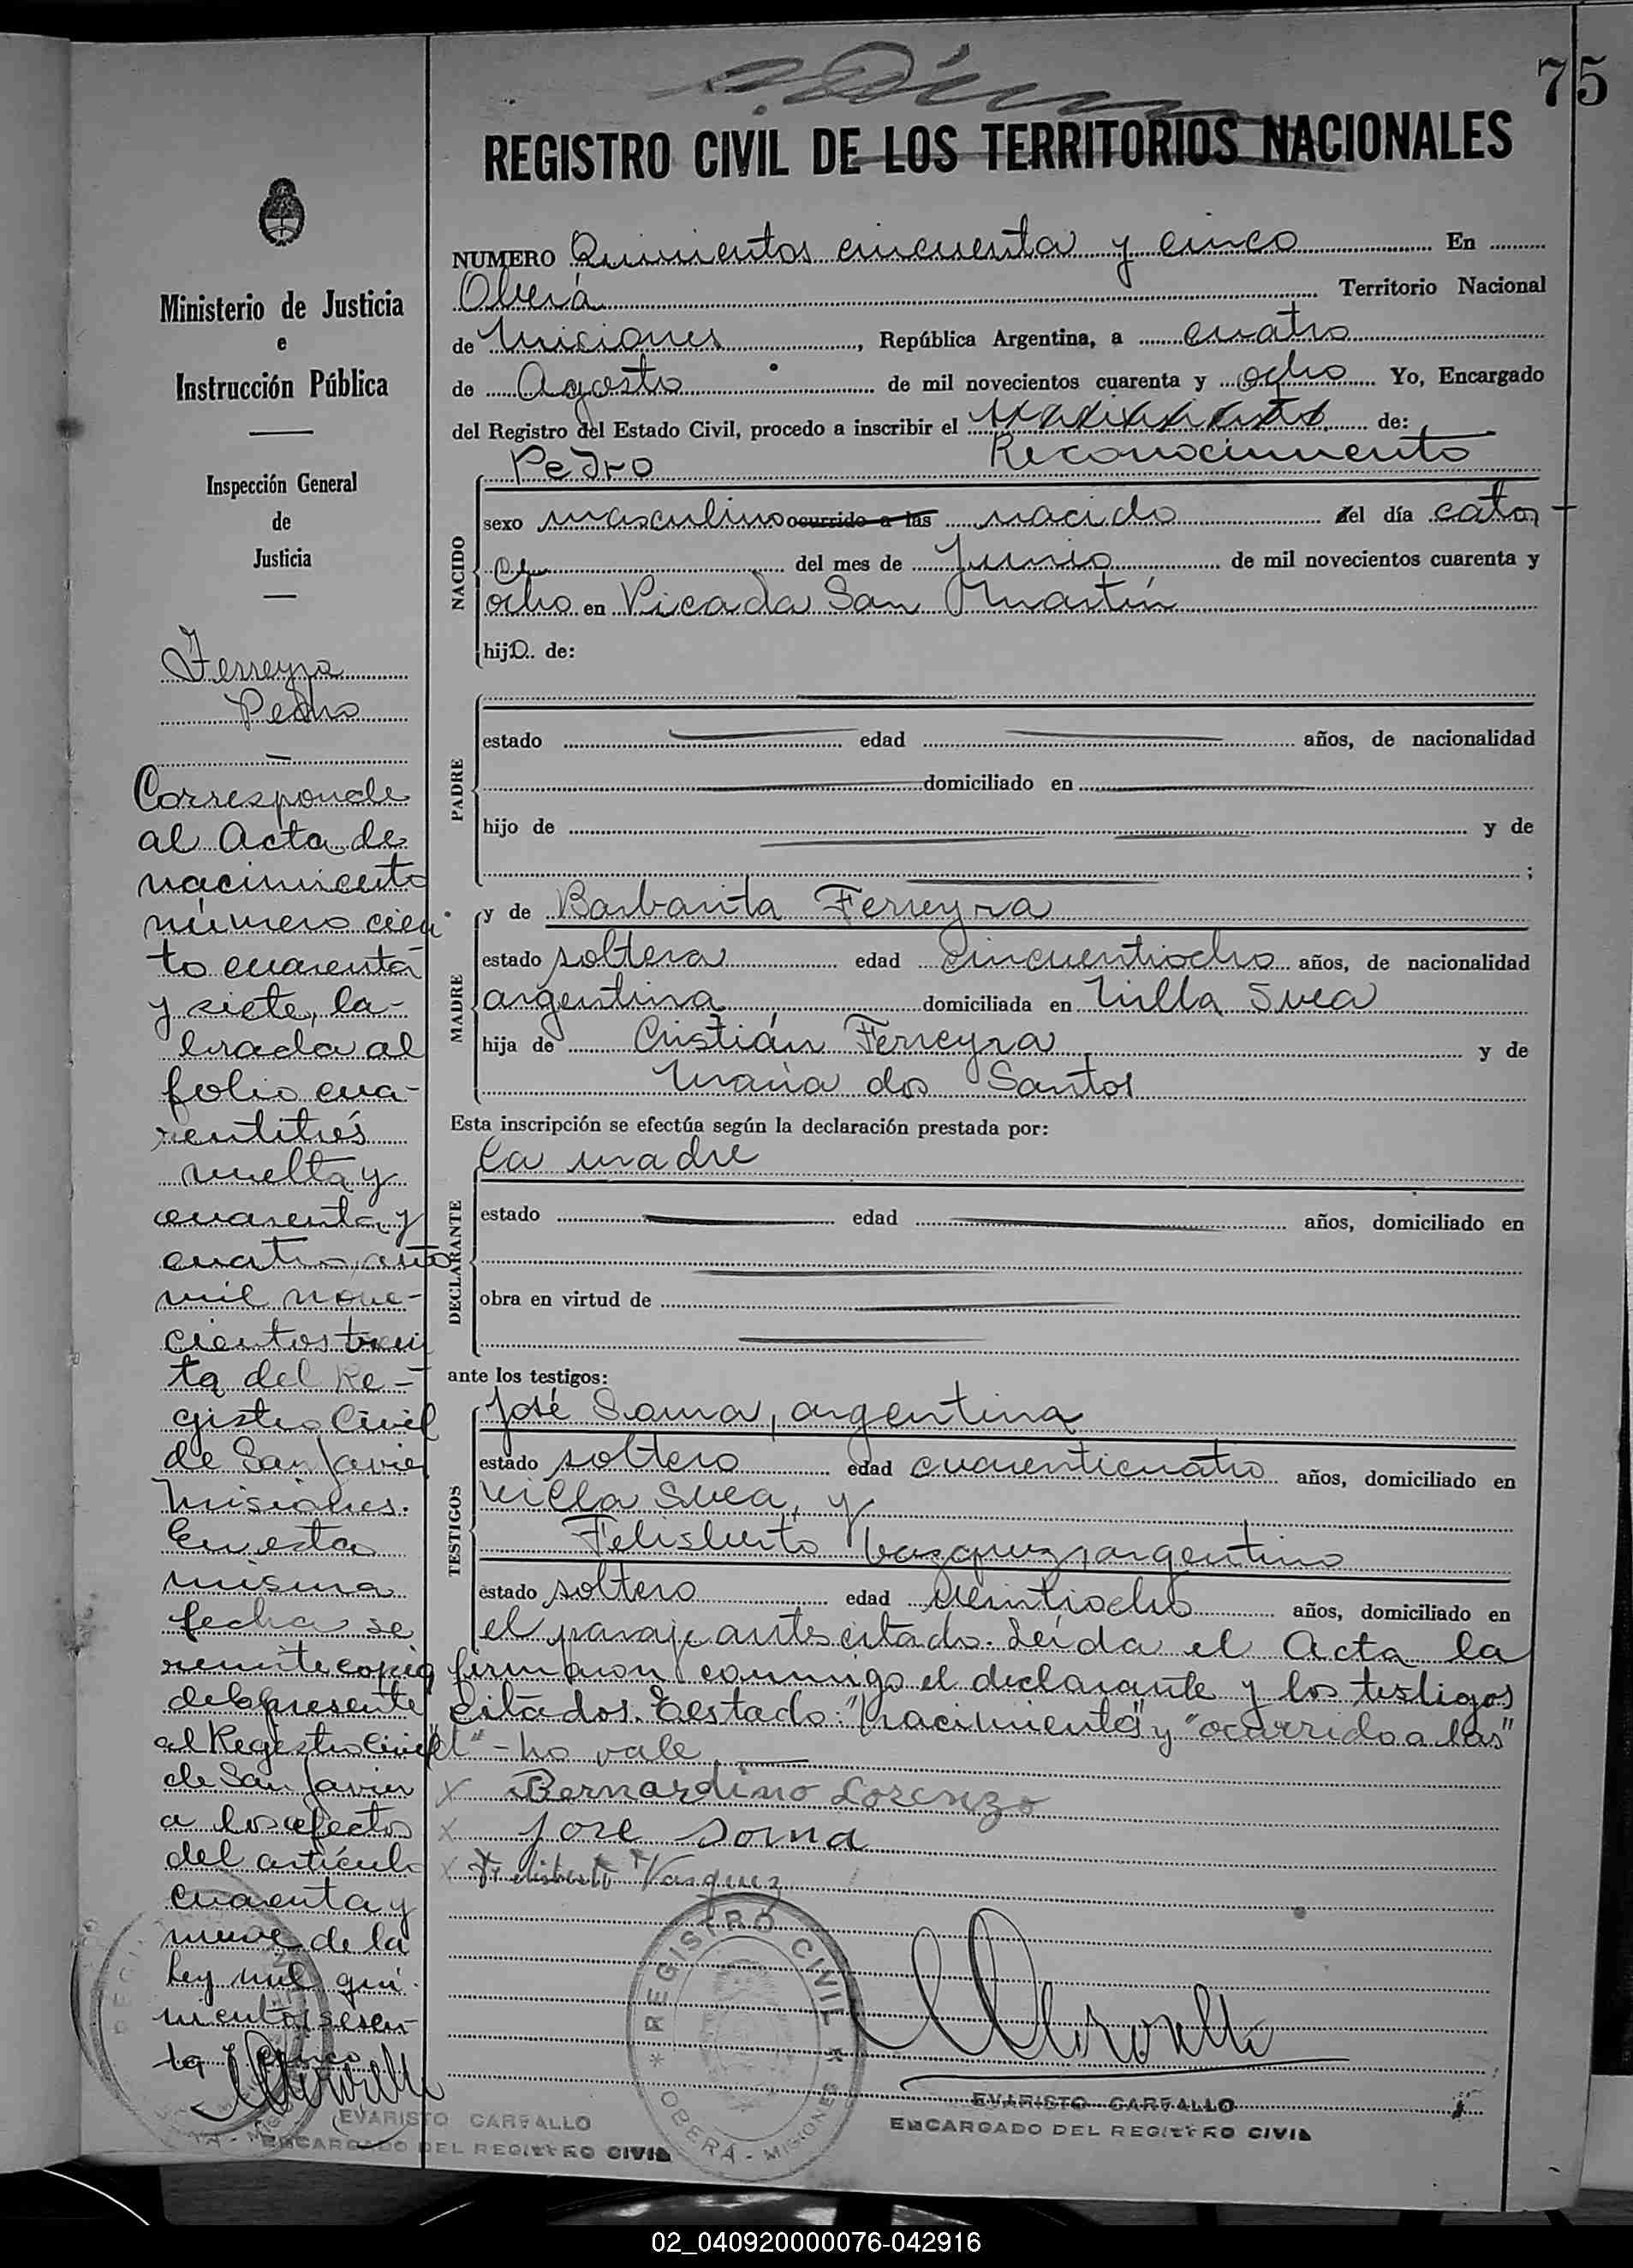 75
REGISTRO CIVIL DE LOS TERRITORIOS NACIONALES
Ministerio de Justicia
e
Instrucción Pública
Inspección General
de
Justicia
Ferreyra
Pedro
Corresponde
al Acta de
nacimiento
número cien
to cuarenta
y siete, la-
brada al
folio cua-
rentitrés
vuelta y
cuarenta y
cuatro, año
mil nove-
cientos trein
ta del Re-
gistro Civil
de San Javier
Misiones.
En esta
misma
fecha se
remite copia
de la presente
al Registro Civil
de San Javier
a los efectos
del artículo
cuarenta y
nueve de la
Ley mil qui-
nientos sesen-
ta y cinco
EVARISTO CARFALLO
ENCARGADO DEL REGISTRO CIVIL
NUMERO Quinientos cincuenta y cinco En
Oberá Territorio Nacional
de Misiones, República Argentina, a cuatro
de Agosto de mil novecientos cuarenta y ocho Yo, Encargado
del Registro del Estado Civil, procedo a inscribir el Nacimiento de:
Pedro Reconocimiento
NACIDO
sexo masculino ocurrido a las nacido del día cator
ce del mes de Junio de mil novecientos cuarenta y
ocho en Picada San Martín
hijo de:
PADRE
estado edad años, de nacionalidad
domiciliado en
hijo de y de
;
MADRE
y de Barbarita Ferreyra
estado soltera edad cincuentiocho años, de nacionalidad
argentina domiciliada en Villa Svea
hija de Cristián Ferreyra y de
María dos Santos
Esta inscripción se efectúa según la declaración prestada por:
DECLARANTE
la madre
estado edad años, domiciliado en
obra en virtud de
ante los testigos:
TESTIGOS
José Sauna, argentina
estado soltero edad cuarenticuatro años, domiciliado en
Villa Svea, y
Felisberto Vazquez, argentino
estado soltero edad veintiocho años, domiciliado en
el paraje antes citado. Leída el Acta la
firmaron conmigo el declarante y los testigos
citados. Testado: "Nacimiento" y "ocurrido a las"
"d" - no vale
X Bernardino Lorenzo
X Jose
X Felisberto Vasquez
REGISTRO CIVIL
OBERA - MISIONES
EVARISTO CARFALLO
ENCARGADO DEL REGISTRO CIVIL
02_040920000076-042916